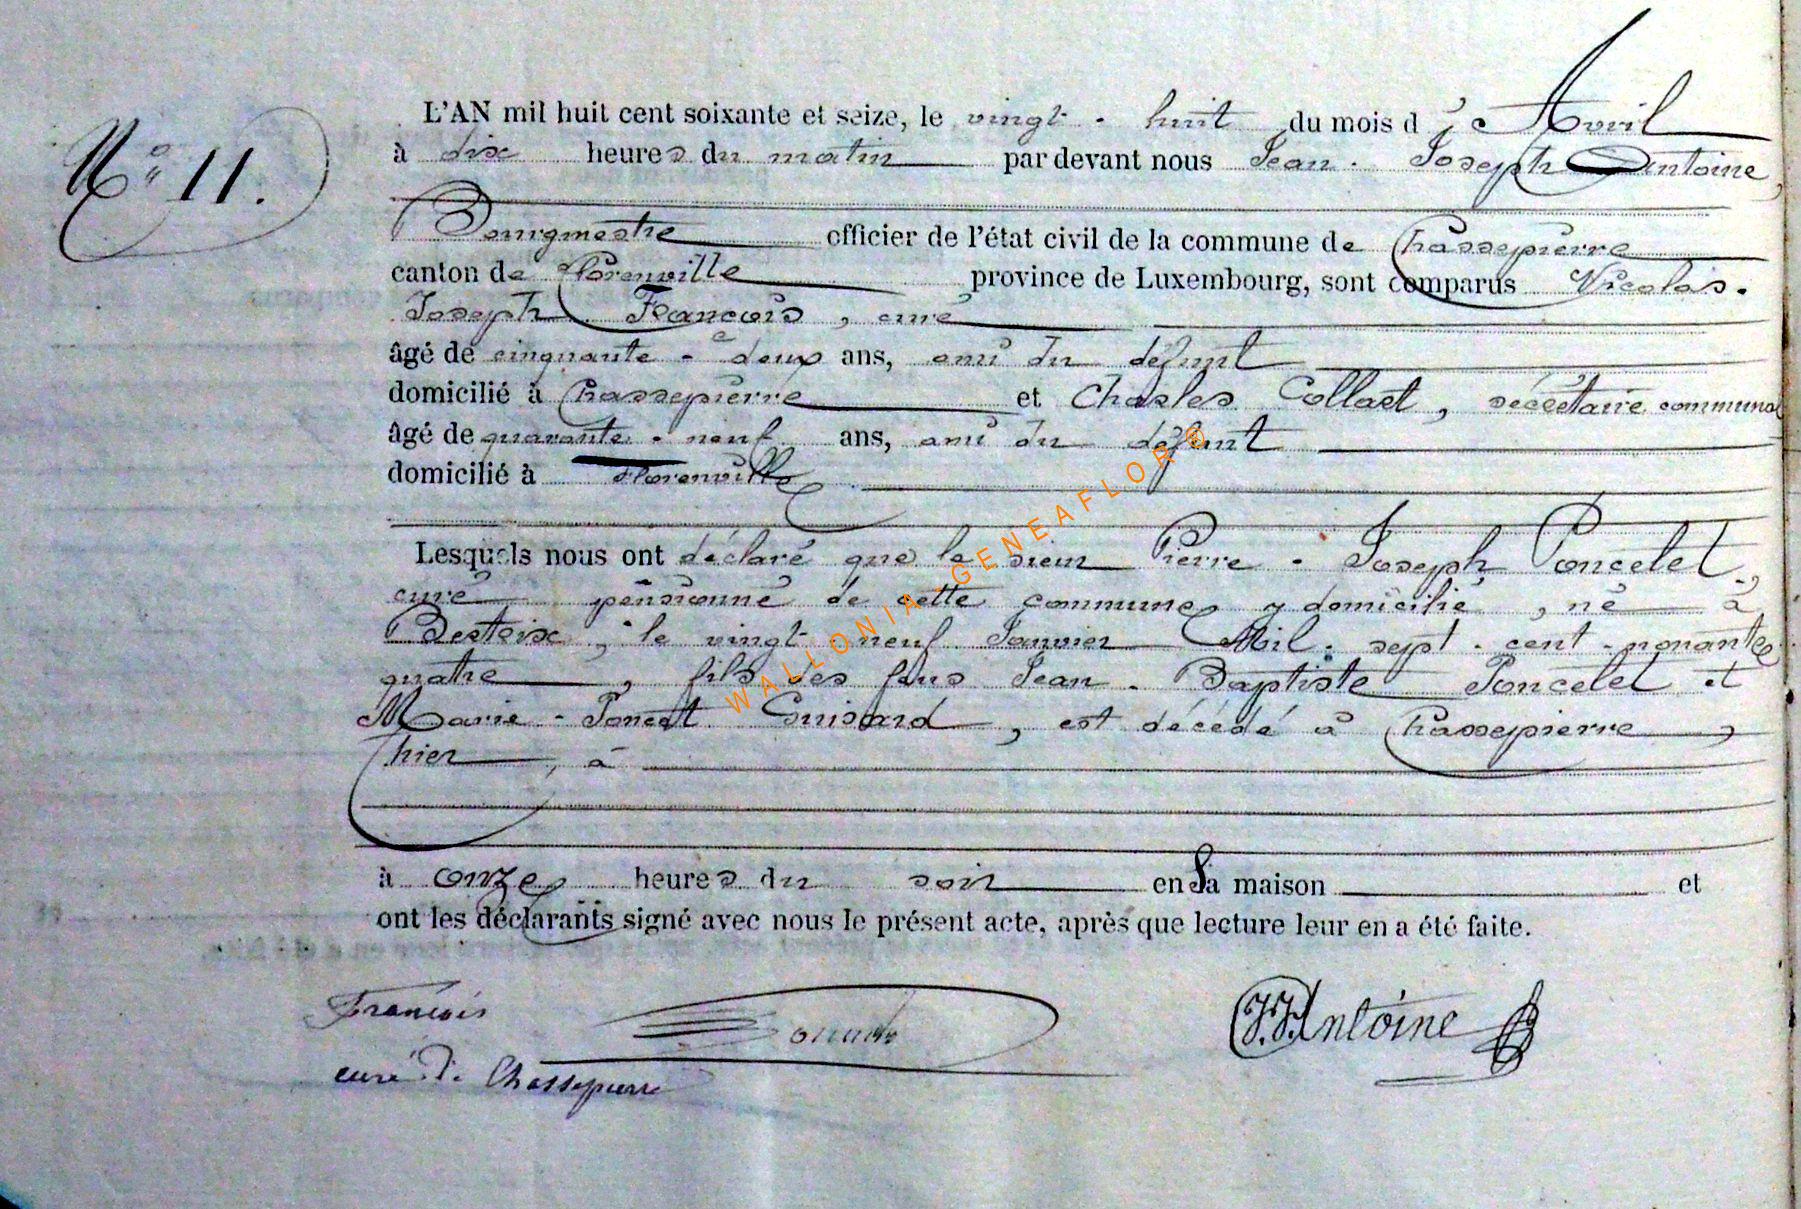 N° 11.
L'AN mil huit cent soixante et seize, le vingt-huit du mois d'Avril
à dix heures du matin par devant nous Jean-Joseph Antoine,
Bourgmestre officier de l'état civil de la commune de Chassepierre
canton de Florenville province de Luxembourg, sont comparus Nicolas-
Joseph François, curé
âgé de cinquante-deux ans, ami du défunt
domicilié à Chassepierre et Charles Collaet, secrétaire communal
âgé de quarante-neuf ans, ami du défunt
domicilié à Florenville
Lesquels nous ont déclaré que le sieur Pierre-Joseph Poncelet,
curé pensionné de cette commune y domicilié, né à
Bertrix, le vingt-neuf Janvier Mil-sept-cent-nonante
quatre, fils des feus Jean-Baptiste Poncelet et
Marie-Poncet Guisard, est décédé à Chassepierre,
hier, à
à onze heures du soir en sa maison et
ont les déclarants signé avec nous le présent acte, après que lecture leur en a été faite.
François
J.J. Antoine
curé de Chassepierre
WALLONIA-GENEAFLOR®